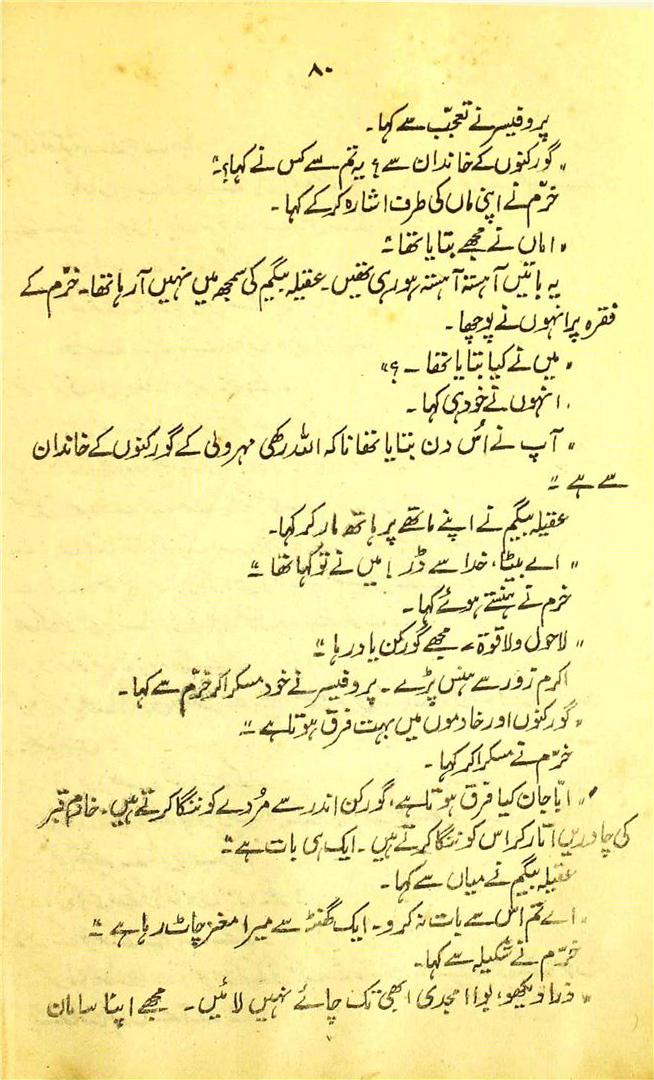 ۸۰
پروفیسر نے تعجب سے کہا۔
"گورکنوں کے خاندان سے؟ یہ تم سے کس نے کہا؟"
خرّم نے اپنی ماں کی طرف اشارہ کرکے کہا۔
"اماں نے مجھے بتایا تھا"
یہ باتیں آہستہ آہستہ ہو رہی تھیں۔ عقیلہ بیگم کی سمجھ میں نہیں آرہا تھا۔ خرّم کے
فقرہ پر انہوں نے پوچھا۔
"میں نے کیا بتایا تھا ۔ ؟"
انہوں نے خود ہی کہا۔
"آپ نے اُس دن بتایا تھا نا کہ اللہ رکھی مہرولی کے گورکنوں کے خاندان
سے ہے"
عقیلہ بیگم نے اپنے ماتھے پر ہاتھ مار کر کہا۔
"اے بیٹا، خدا سے ڈر! میں نے تو کہا تھا"
خرم نے ہنستے ہوئے کہا۔
"لاحول ولا قوۃ، مجھے گورکن یاد رہا"
اکرم زور سے ہنس پڑے۔ پروفیسر نے خود مسکرا کر خرّم سے کہا۔
"گورکنوں اور خادموں میں بہت فرق ہوتا ہے"
خرّم نے مسکرا کر کہا۔
"ابّا جان کیا فرق ہوتا ہے، گورکن اندر سے مُردے کو ننگا کرتے ہیں۔ خادم قبر
کی چادریں اتار کر اس کو ننگا کرتے ہیں۔ ایک ہی بات ہے"
عقیلہ بیگم نے میاں سے کہا۔
"اے تم اس سے بات نہ کرو۔ ایک گھنٹہ سے میرا مغز چاٹ رہا ہے"
خرّم نے شکیلہ سے کہا۔
"ذرا دیکھو، بوا امجدی ابھی تک چائے نہیں لائیں۔ مجھے اپنا سامان